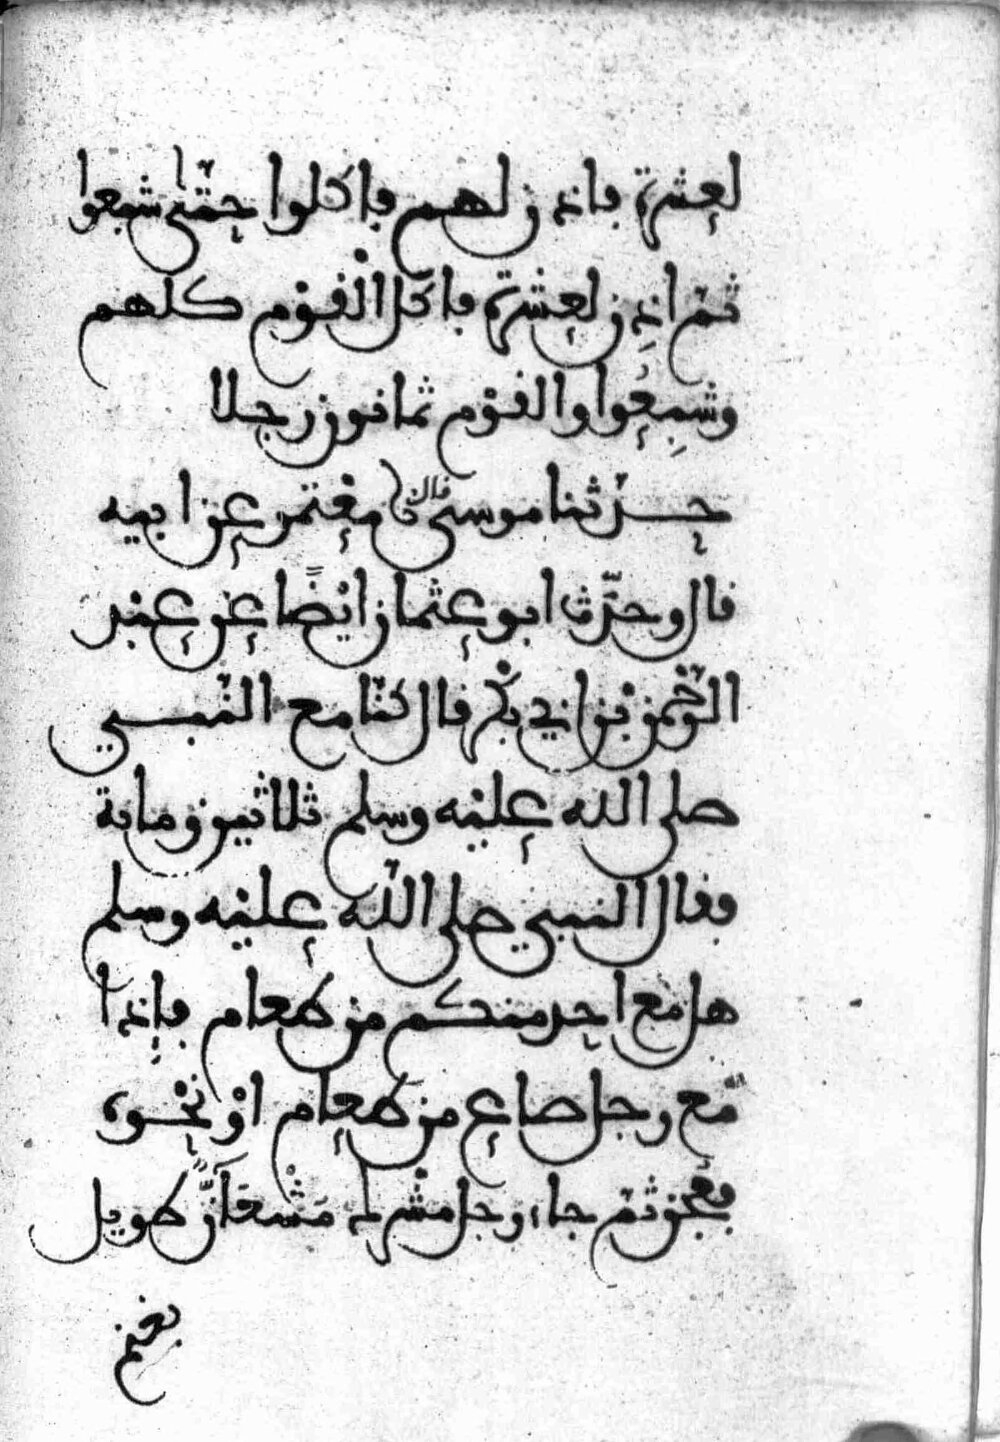 لعشرة فاذن لهم فاكلوا حتى شبعوا
ثم اذن لعشرة فاكل القوم كلهم
وشبعوا والقوم ثمانون رجلا
حدثنا موسى قال نا معتمر عن ابيه
قال وحدث ابو عثمان ايضا عن عبد
الرحمن بن ابي بكر قال كنا مع النبي
صلى الله عليه وسلم ثلاثين وماية
فقال النبي صلى الله عليه وسلم
هل مع احد منكم من طعام فاذا
مع رجل صاع من طعام او نحوه
فعجن ثم جاء رجل مشرك مشعان طويل
بغنم